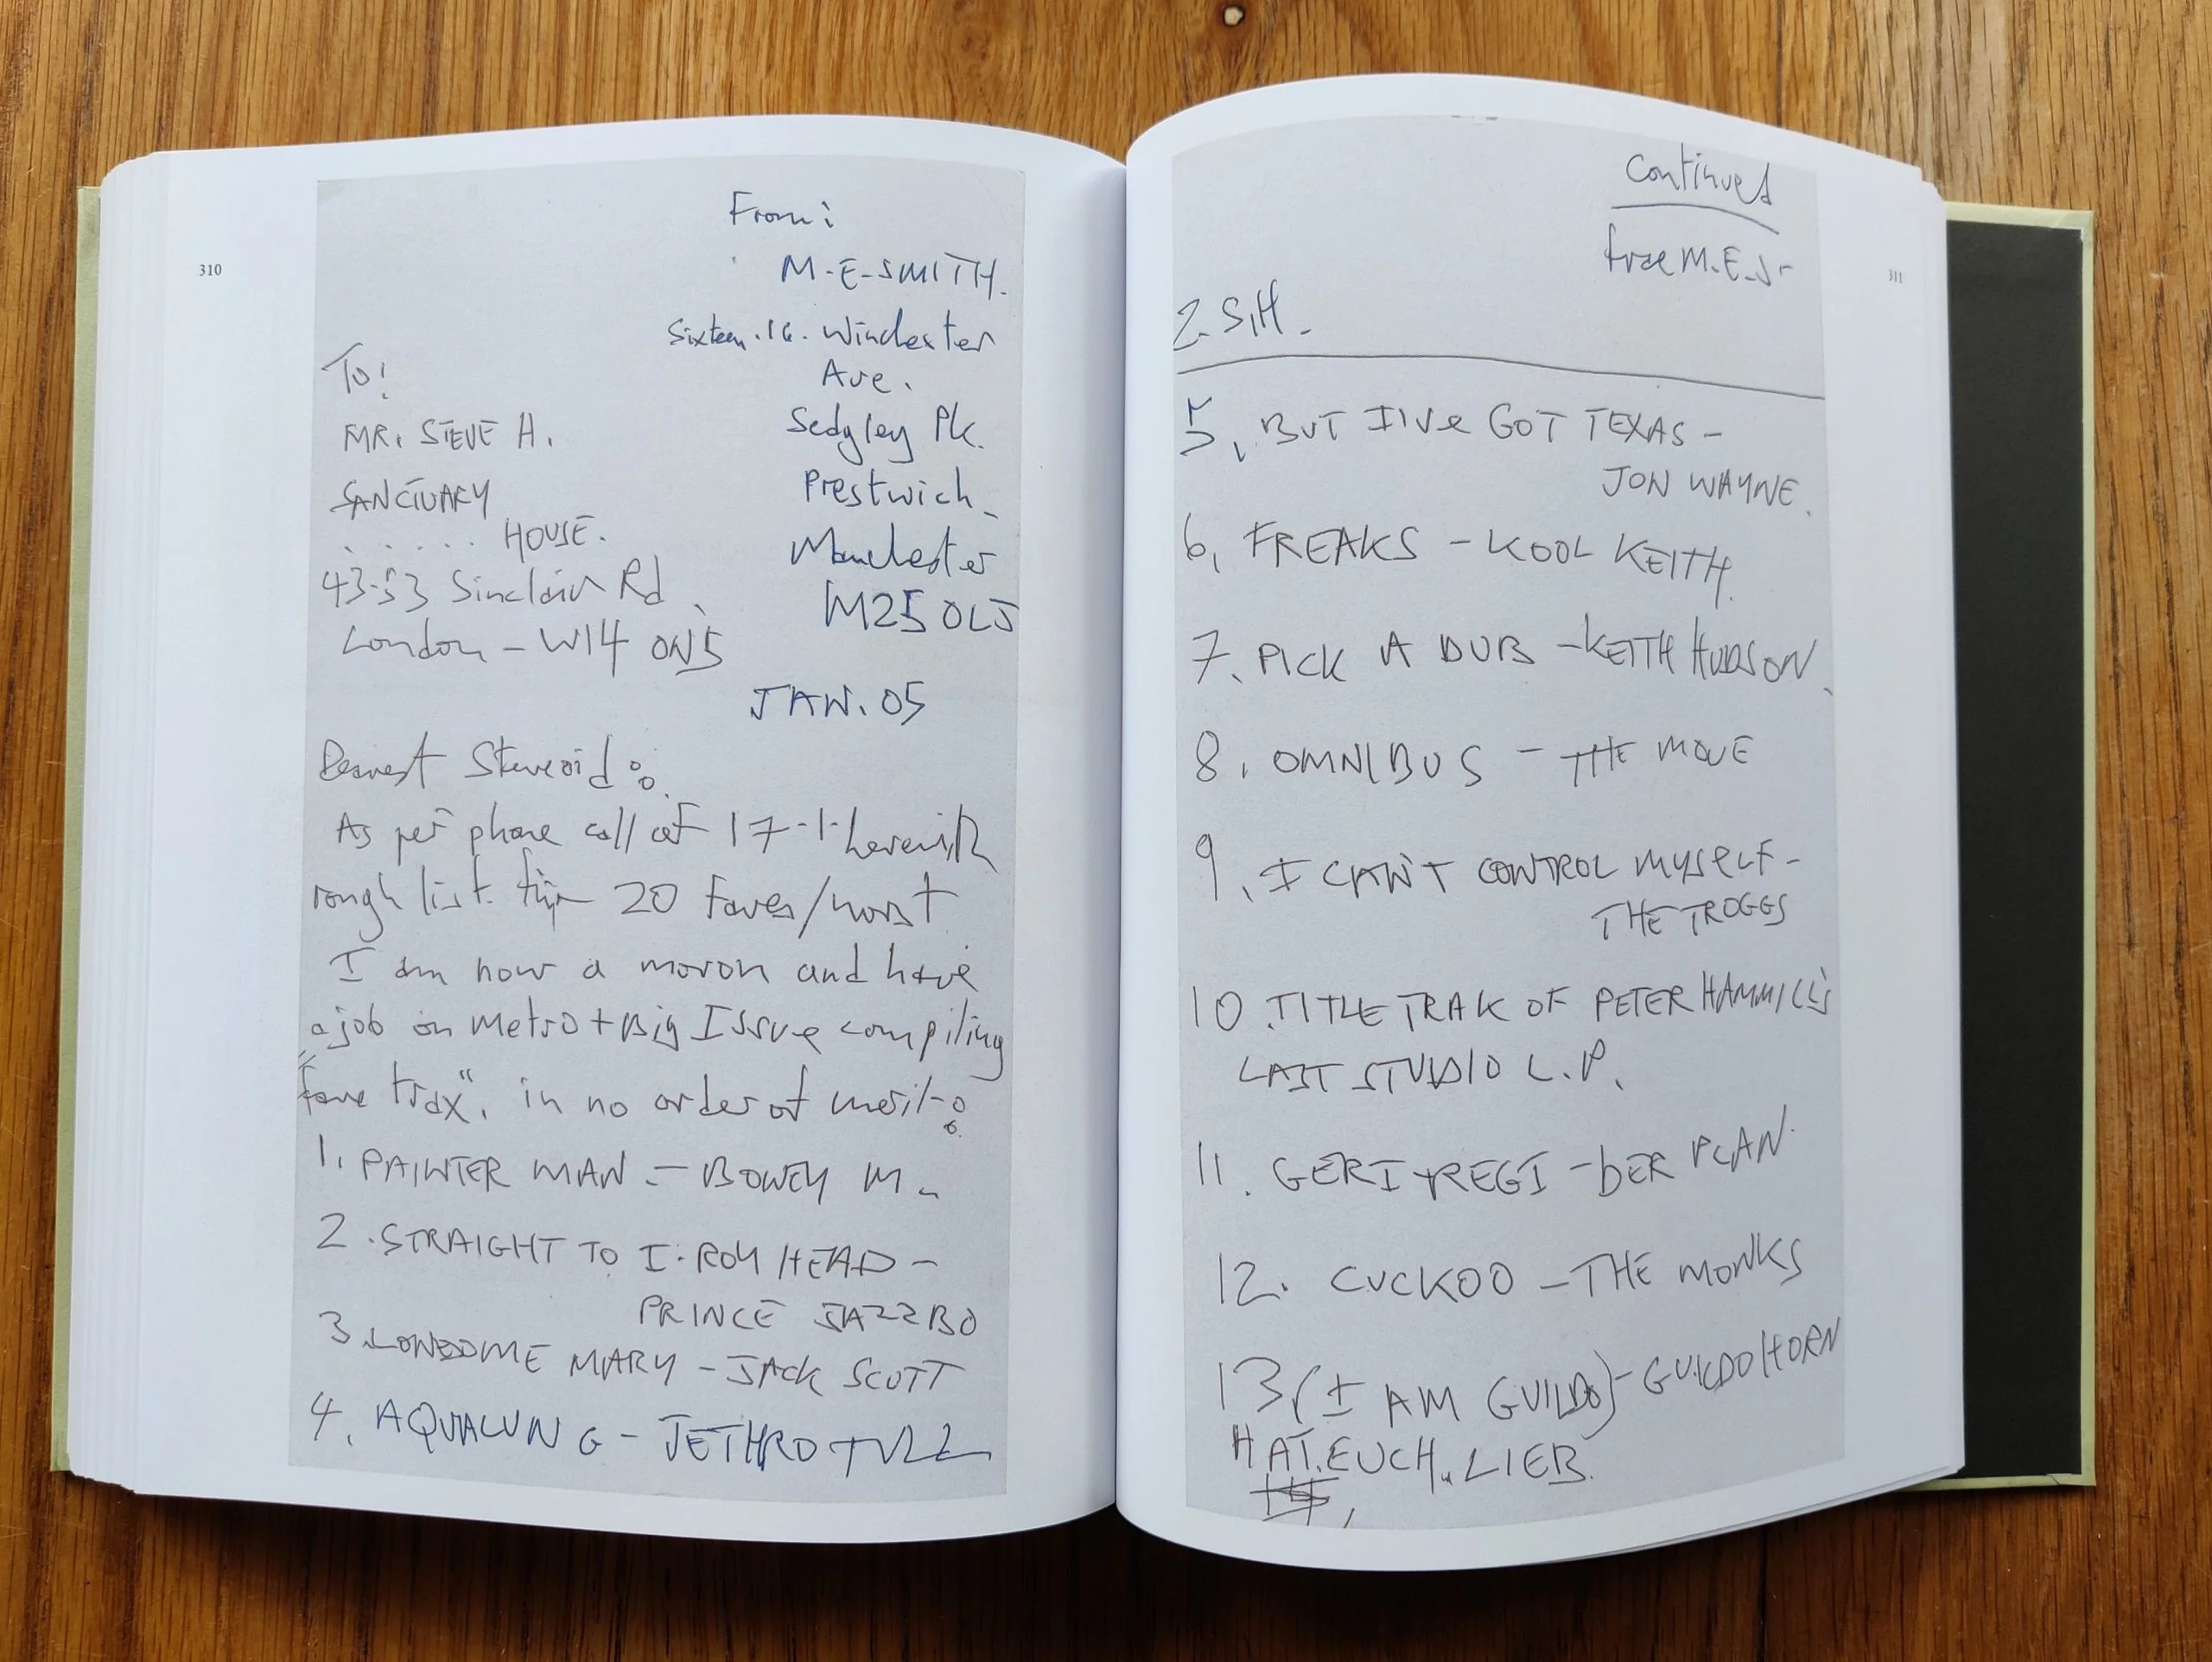 310
From:
M-E-SMITH.
Sixteen.16. Winchester
Ave.
Sedgley Pk.
Prestwich
Manchester
M25 0LJ
To!
MR. STEVE H.
SANCTUARY
...... HOUSE.
43-53 Sinclair Rd
London - W14 ONS
JAN. 05
Dearest Steveroid:
As per phone call of 17-1-herewith
rough list 20 faves/worst
I am now a moron and have
a job on Metro + Big Issue compiling
"fave trax". in no order of merit:
1. PAINTER MAN - BONEY M.
2. STRAIGHT TO I. ROY HEAD -
PRINCE JAZZBO
3. LONESOME MARY - JACK SCOTT
4. AQUALUNG - JETHRO TULL
311
Continued
M.E.S-
2. S.H.
5, BUT I'Ve GOT TEXAS -
JON WAYNE.
6, FREAKS - KOOL KEITH.
7. PICK A DUB - KEITH HUDSON.
8. OMNIBUS - THE MOVE
9. I CAN'T CONTROL MYSELF -
THE TROGGS
10. TITLE TRAK OF PETER HAMMILL'S
LAST STUDIO L.P.
11. GERI + REGI - DER PLAN
12. CUCKOO - THE MONKS
13 (I AM GUILDO) - GUILDO HORN
HAT. EUCH. LIEB.